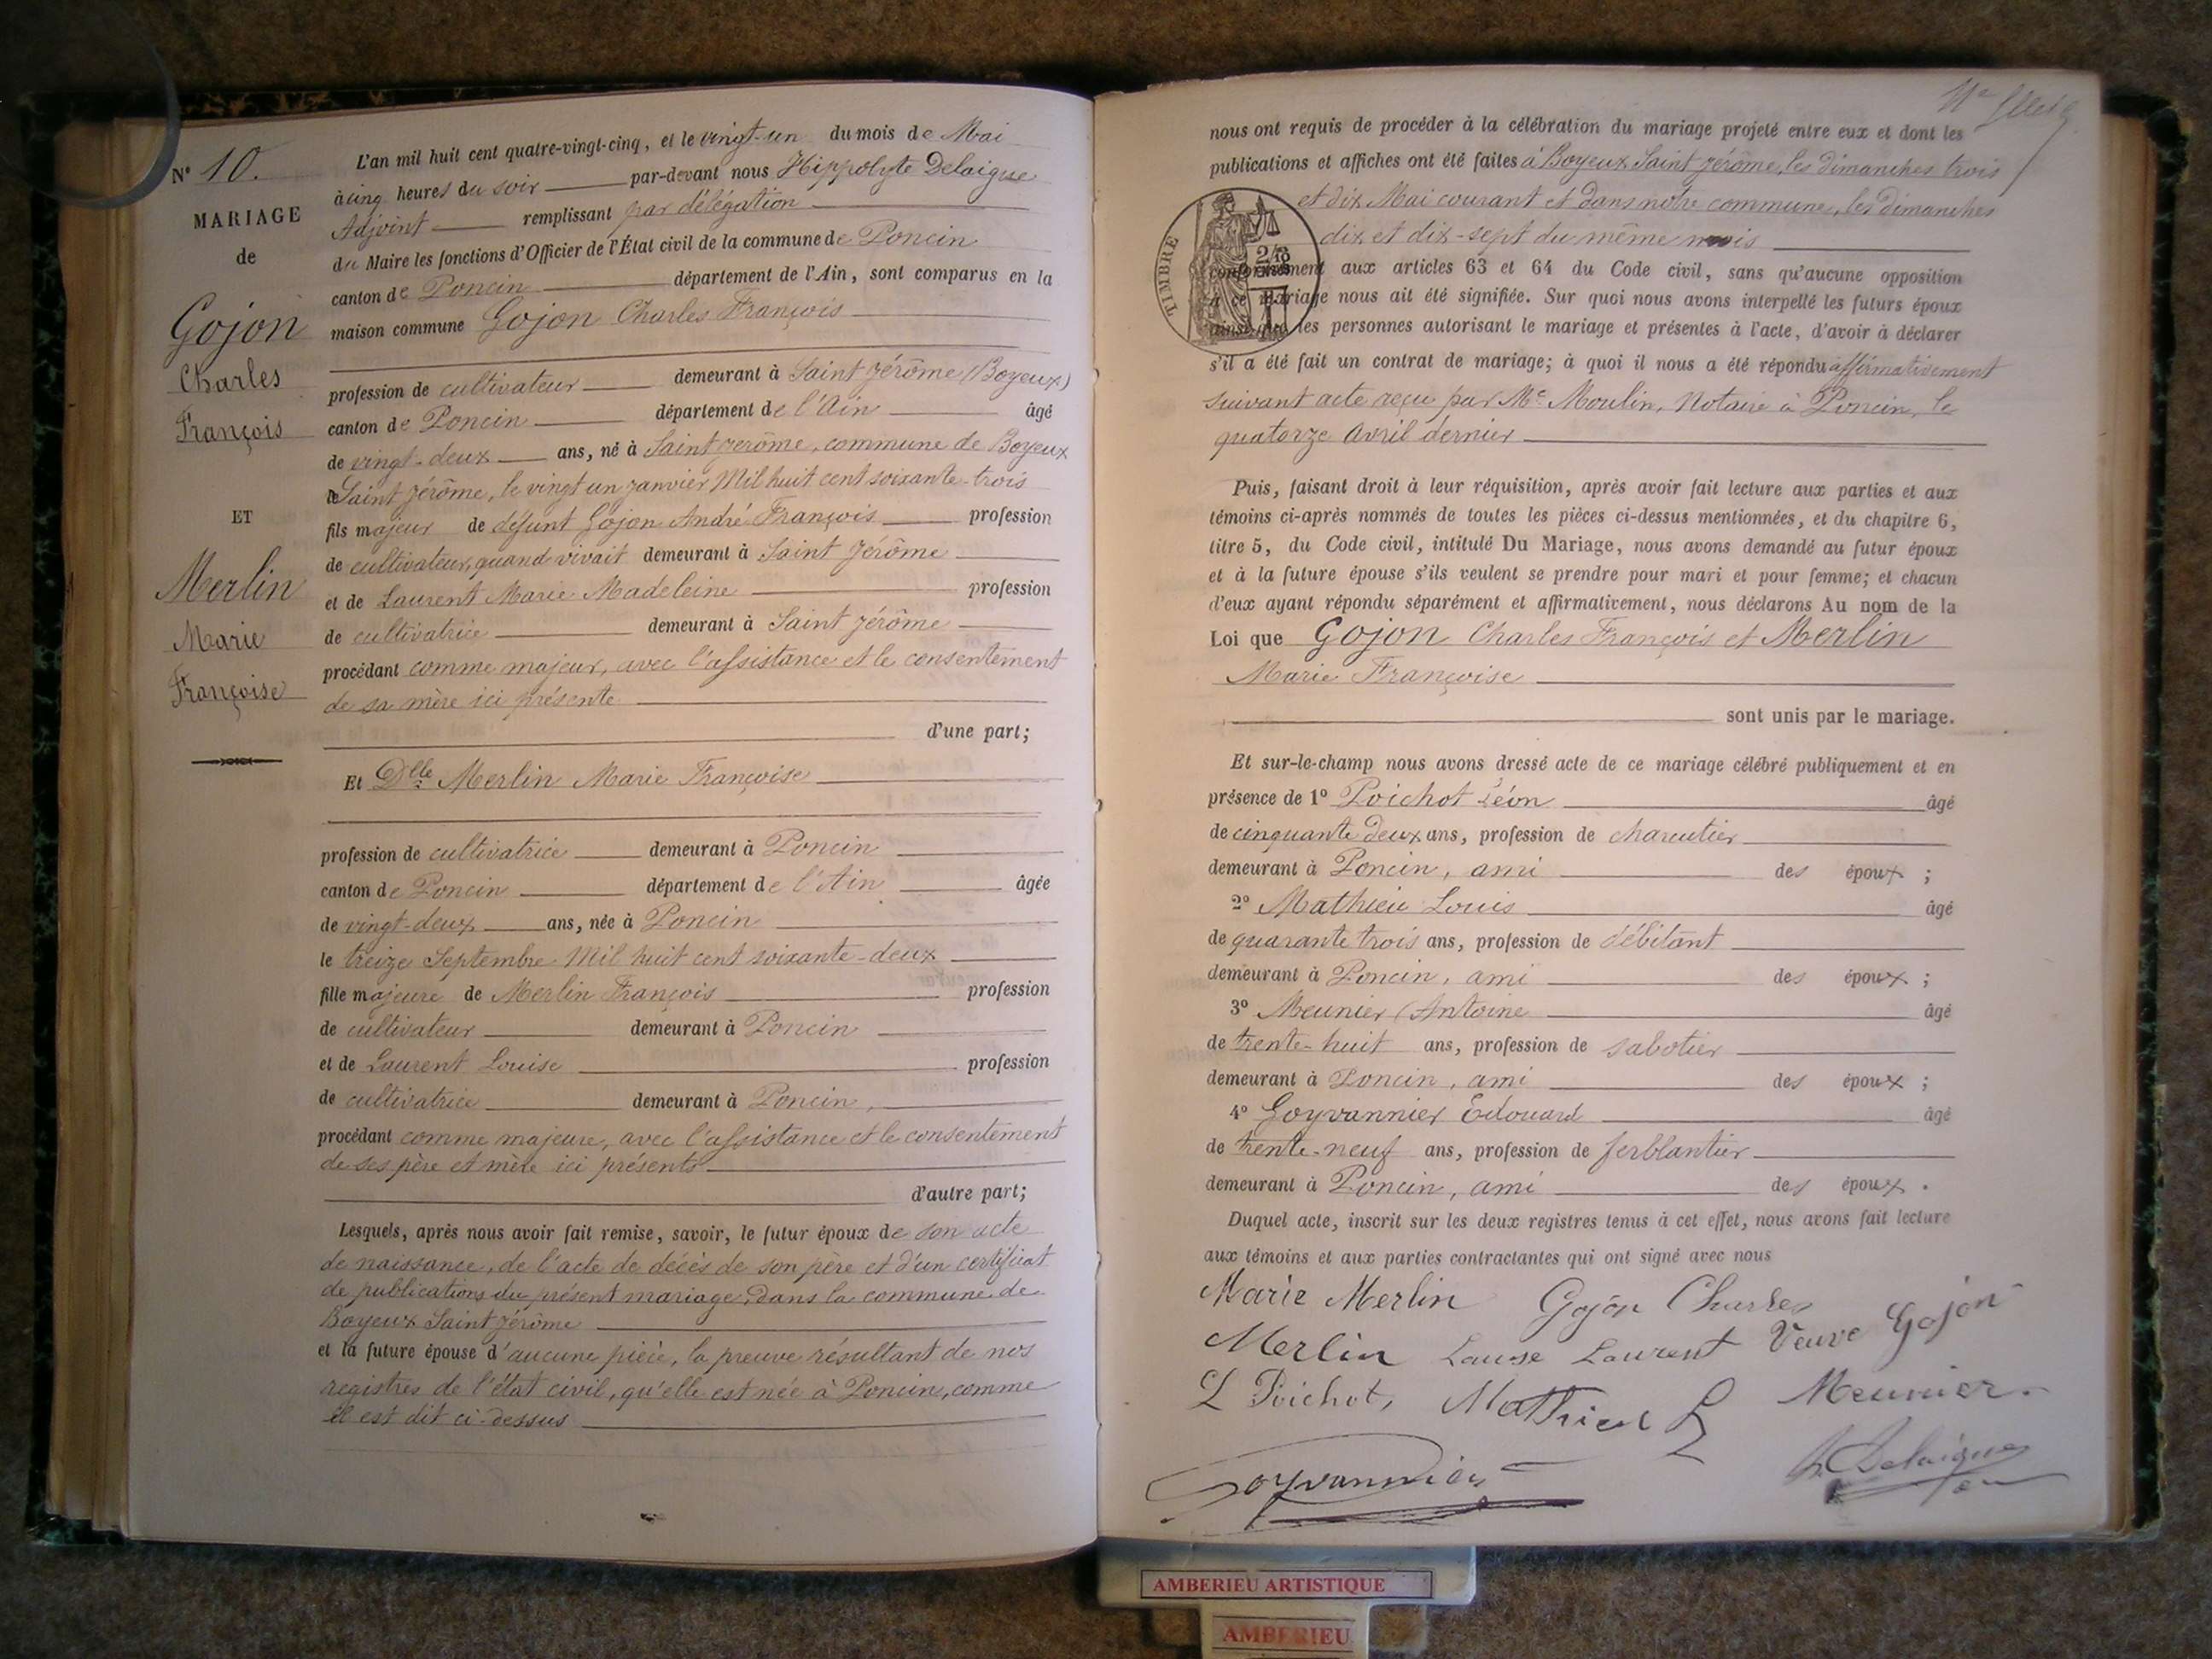 N° 10.
MARIAGE
de
Gojon
Charles
François
ET
Merlin
Marie
Françoise
L'an mil huit cent quatre-vingt-cinq, et le vingt-un du mois de Mai
à cinq heures du soir par-devant nous Hippolyte Delaigue
Adjoint remplissant par délégation
du Maire les fonctions d'Officier de l'État civil de la commune de Poncin
canton de Poncin département de l'Ain, sont comparus en la
maison commune Gojon Charles François
profession de cultivateur demeurant à Saint Jérôme (Boyeux)
canton de Poncin département de l'Ain âgé
de vingt-deux ans, né à Saint Jérôme, commune de Boyeux
Saint Jérôme, le vingt un janvier Mil huit cent soixante-trois
fils majeur de défunt Gojon André François profession
de cultivateur, quand vivait demeurant à Saint Jérôme
et de Laurent Marie Madeleine profession
de cultivatrice demeurant à Saint Jérôme
procédant comme majeur, avec l'assistance et le consentement
de sa mère ici présente
d'une part;
Et Dlle Merlin Marie Françoise
profession de cultivatrice demeurant à Poncin
canton de Poncin département de l'Ain âgée
de vingt-deux ans, née à Poncin
le treize Septembre Mil huit cent soixante-deux
fille majeure de Merlin François profession
de cultivateur demeurant à Poncin
et de Laurent Louise profession
de cultivatrice demeurant à Poncin,
procédant comme majeure, avec l'assistance et le consentement
de ses père et mère ici présents
d'autre part;
Lesquels, après nous avoir fait remise, savoir, le futur époux de son acte
de naissance, de l'acte de décès de son père et d'un certificat
de publications du présent mariage, dans la commune de
Boyeux Saint Jérôme
et la future épouse d'aucune pièce, la preuve résultant de nos
registres de l'état civil, qu'elle est née à Poncin, comme
il est dit ci-dessus
nous ont requis de procéder à la célébration du mariage projeté entre eux et dont les
publications et affiches ont été faites à Boyeux Saint Jérôme, les dimanches trois
et dix Mai courant et dans notre commune, les dimanches
dix et dix-sept du même mois
TIMBRE
conformément aux articles 63 et 64 du Code civil, sans qu'aucune opposition
à ce mariage nous ait été signifiée. Sur quoi nous avons interpellé les futurs époux
ainsi que les personnes autorisant le mariage et présentes à l'acte, d'avoir à déclarer
s'il a été fait un contrat de mariage; à quoi il nous a été répondu affirmativement
suivant acte reçu par Me Moulin, Notaire à Poncin, le
quatorze Avril dernier
Puis, faisant droit à leur réquisition, après avoir fait lecture aux parties et aux
témoins ci-après nommés de toutes les pièces ci-dessus mentionnées, et du chapitre 6,
titre 5, du Code civil, intitulé Du Mariage, nous avons demandé au futur époux
et à la future épouse s'ils veulent se prendre pour mari et pour femme; et chacun
d'eux ayant répondu séparément et affirmativement, nous déclarons Au nom de la
Loi que Gojon Charles François et Merlin
Marie Françoise
sont unis par le mariage.
Et sur-le-champ nous avons dressé acte de ce mariage célébré publiquement et en
présence de 1° Poichot Léon âgé
de cinquante deux ans, profession de charcutier
demeurant à Poncin, ami des époux ;
2° Mathieu Louis âgé
de quarante trois ans, profession de débitant
demeurant à Poncin, ami des époux ;
3° Meunier Antoine âgé
de trente-huit ans, profession de sabotier
demeurant à Poncin, ami des époux ;
4° Goyvannier Edouard âgé
de trente-neuf ans, profession de ferblantier
demeurant à Poncin, ami des époux .
Duquel acte, inscrit sur les deux registres tenus à cet effet, nous avons fait lecture
aux témoins et aux parties contractantes qui ont signé avec nous
Marie Merlin Gojon Charles
Merlin Louise Laurent Veuve Gojon
L Poichot, Mathieu L Meunier.
Goyvannier H. Delaigue
AMBERIEU ARTISTIQUE
AMBERIEU